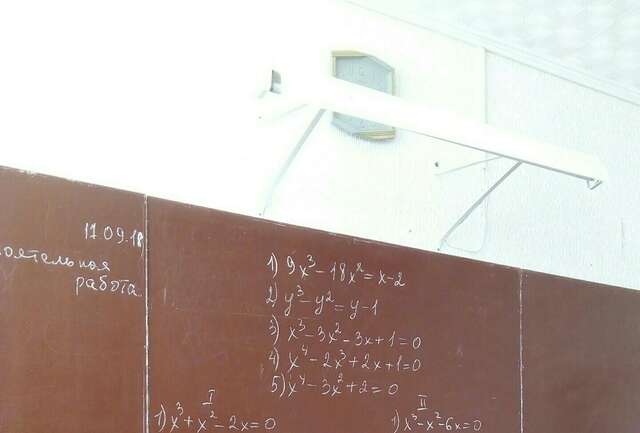 17.09.18
оятельная
работа
1) 9x³ - 18x² = x - 2
2) y³ - y² = y - 1
3) x³ - 3x² - 3x + 1 = 0
4) x⁴ - 2x³ + 2x + 1 = 0
5) x⁴ - 3x² + 2 = 0
I
1) x³ + x² - 2x = 0
II
1) x³ - x² - 6x = 0